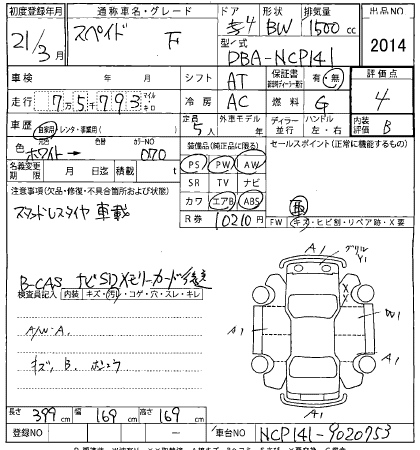 初度登録年月 通称車名・グレード ドア 形状 排気量 出品NO
21/3月 スペイド F 5 4 BW 1500cc 2014
型式 DBA-NCP141
車検 年 月 シフト AT 保証書 有・無 評価点
走行 7万5千793 マイル キロ 冷房 AC 燃料 G 4
車歴 自家用 レンタ・事業用( ) 定員 5人 外車モデル 年 ディーラー 並行 ハンドル 左・右 内装評価 B
色 ホワイト→ 色替 カラーNO 070 装備品(純正品に限る) セールスポイント(正常に機能するもの)
名義変更期限 月 日迄 積載 t PS PW AW
注意事項(欠品・修復・不具合箇所および状態) SR TV ナビ
スタッドレスタイヤ 車載 カワ エアB ABS
R券 10210円 FW キズ・ヒビ割・リペア跡・X要
B-CAS ナビSDメモリーカード後送
検査員記入 内装 キズ・汚レ・コゲ・穴・スレ・キレ
A1 グリル Y1
A/W・A.
A1 X X W1
A1
キズ, B.
A1
長さ 399cm 幅 169cm 高さ 169cm
登録NO ー 車台NO NCP141-9020753